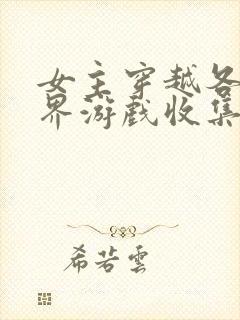 女主穿越各
界游戏收集
希若雲